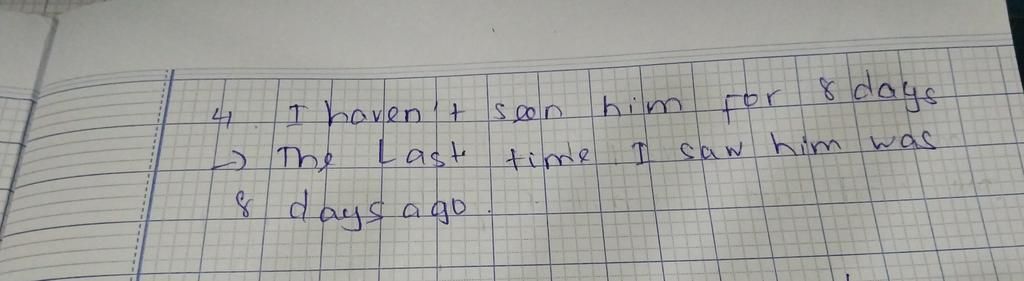 4. I haven't seen him for 8 days
→ The Last time I saw him was
8 days ago.